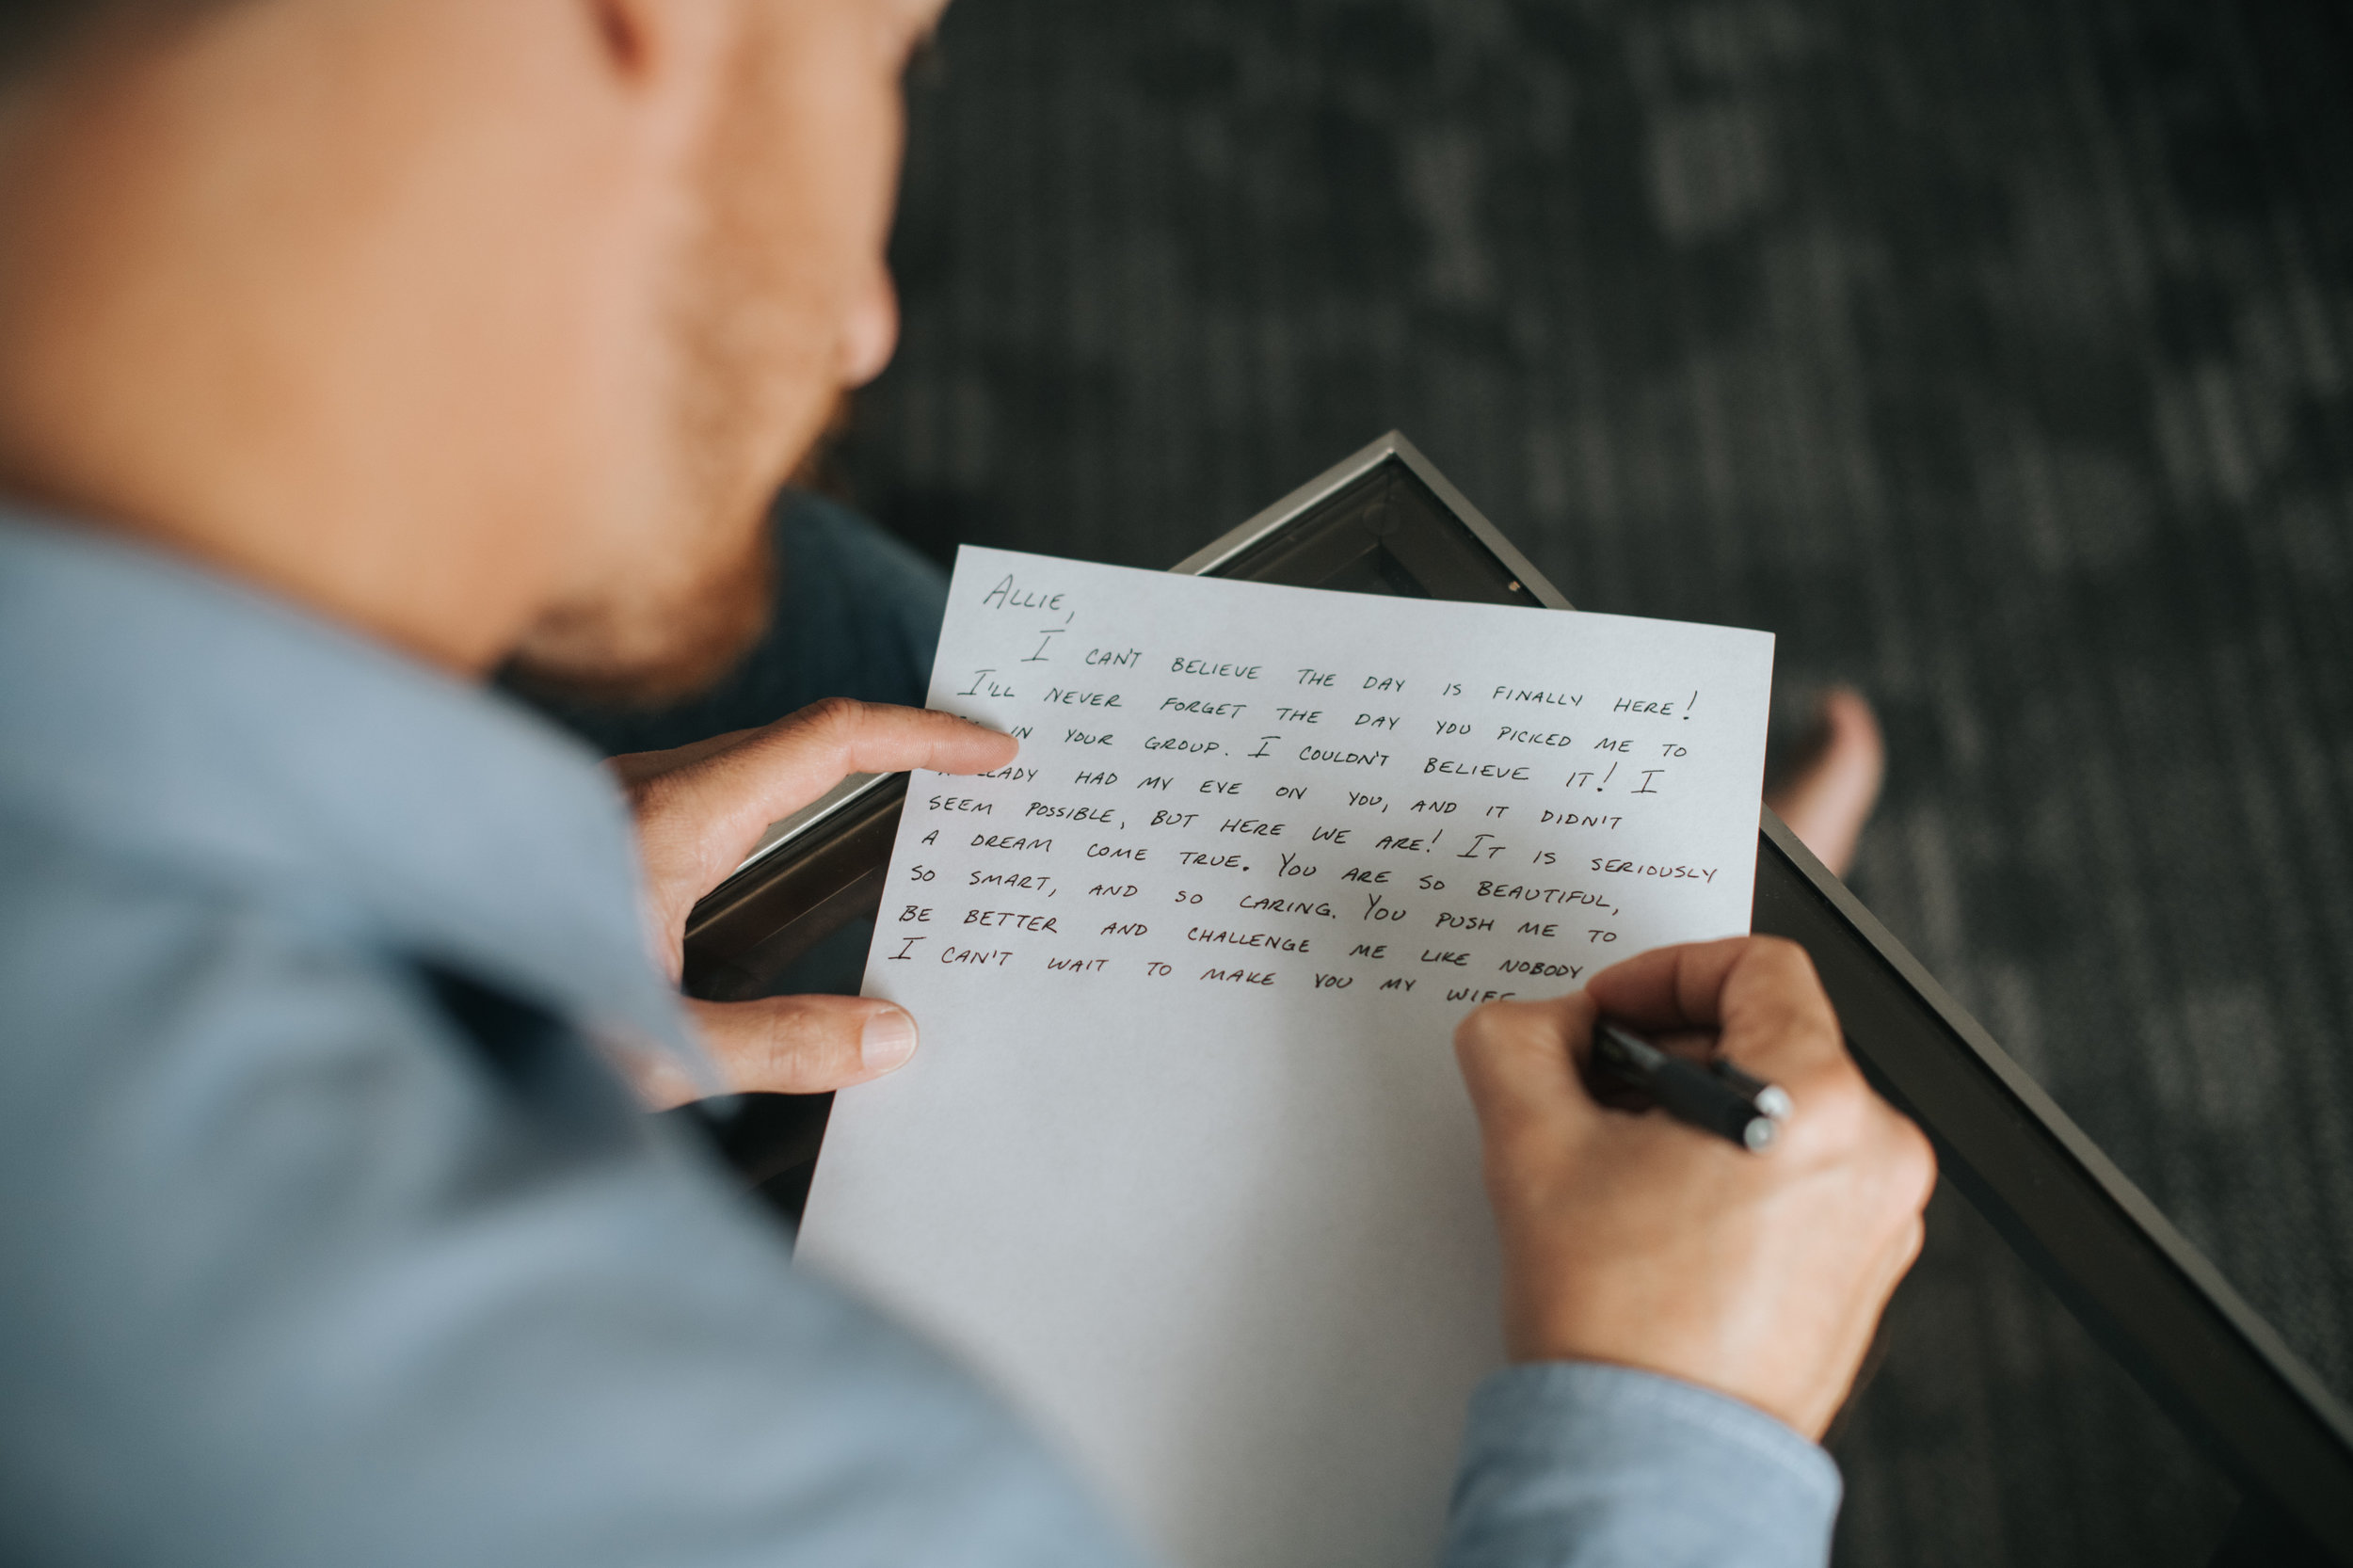 ALLIE,
I CAN'T BELIEVE THE DAY IS FINALLY HERE!
I'LL NEVER FORGET THE DAY YOU PICKED ME TO
IN YOUR GROUP. I COULDN'T BELIEVE IT! I
HAD MY EYE ON YOU, AND IT DIDN'T
SEEM POSSIBLE, BUT HERE WE ARE! IT IS SERIOUSLY
A DREAM COME TRUE. YOU ARE SO BEAUTIFUL,
SO SMART, AND SO CARING. YOU PUSH ME TO
BE BETTER AND CHALLENGE ME LIKE NOBODY
I CAN'T WAIT TO MAKE YOU MY WIFE